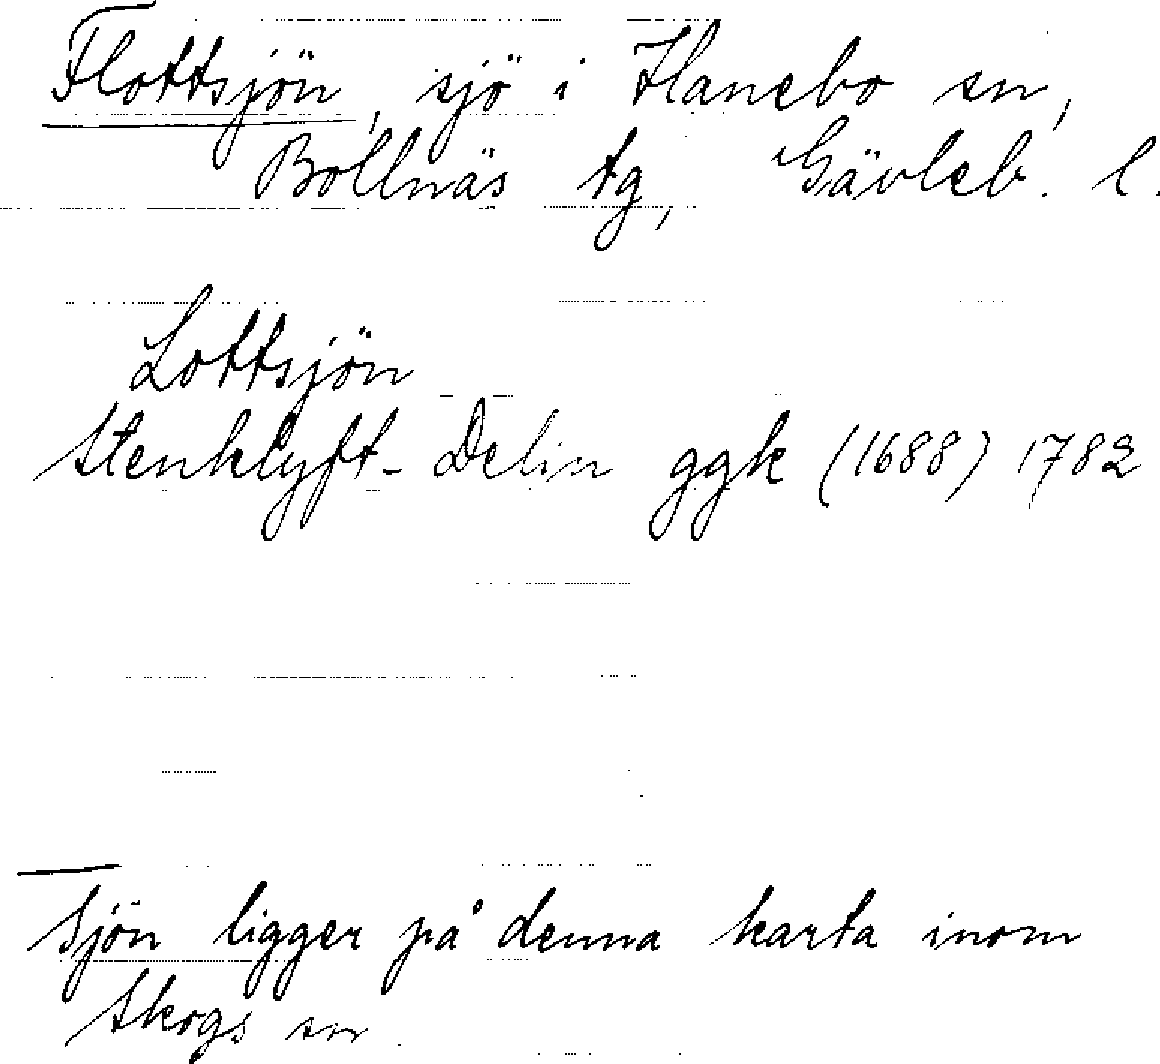 Flottsjön, sjö i Hanebo sn,
Bollnäs tg, Gävleb. l.
Lottsjön
Stenklyft-Delin ggk (1688) 1782
Sjön ligger på denna karta inom
Skogs sn.